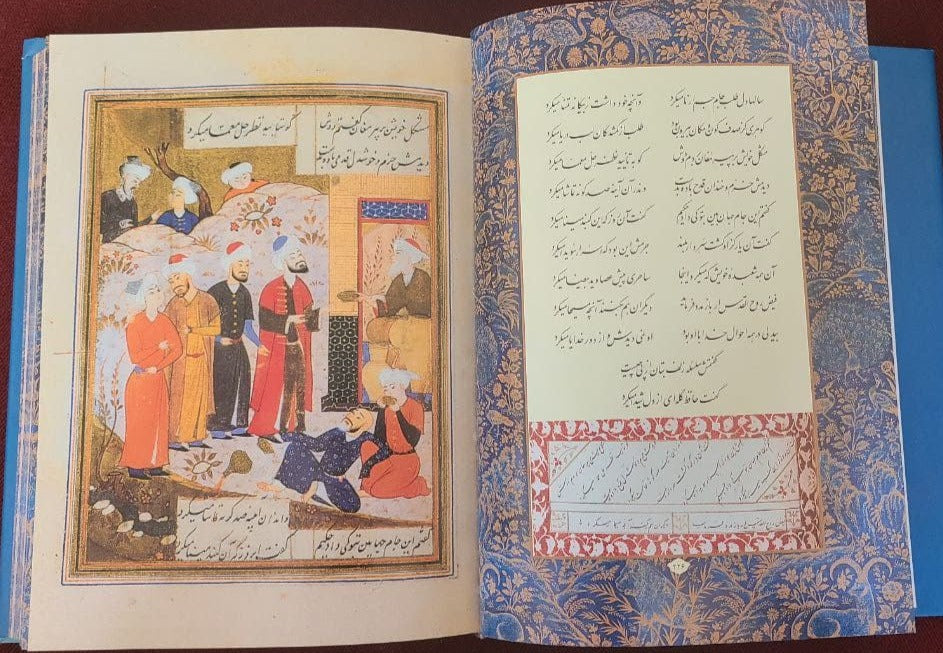 سالها دل طلب جام جم از ما میکرد وآنچه خود داشت ز بیگانه تمنا میکرد
گوهری کز صدف کون و مکان بیرونست طلب از گمشدگان لب دریا میکرد
مشکل خویش بر پیر مغان بردم دوش کو به تأیید نظر حل معما میکرد
دیدمش خرم و خندان قدح باده بدست وندر آن آینه صد گونه تماشا میکرد
گفتم این جام جهان بین بتو کی داد حکیم گفت آن روز که این گنبد مینا میکرد
گفت آن یار کزو گشت سر دار بلند جرمش این بود که اسرار هویدا میکرد
آن همه شعبده خویش که میکرد اینجا سامری پیش عصا و ید بیضا میکرد
فیض روح القدس ار باز مدد فرماید دیگران هم بکنند آنچه مسیحا میکرد
بیدلی در همه احوال خدا با او بود او نمی دیدش و از دور خدایا میکرد
گفتمش سلسله زلف بتان از پی چیست
گفت حافظ گله ای از دل شیدا میکرد
۲۲۶
مشکل خویش بر پیر مغان گفتم دوش کو بتایید نظر حل معما میکرد
دیدمش خرم و خوشدل قدحی باده بدست
واندران آینه صد گونه تماشا میکرد
گفتم این جام جهان بین بتو کی داد حکیم گفت آنروز که این گنبد مینا میکرد